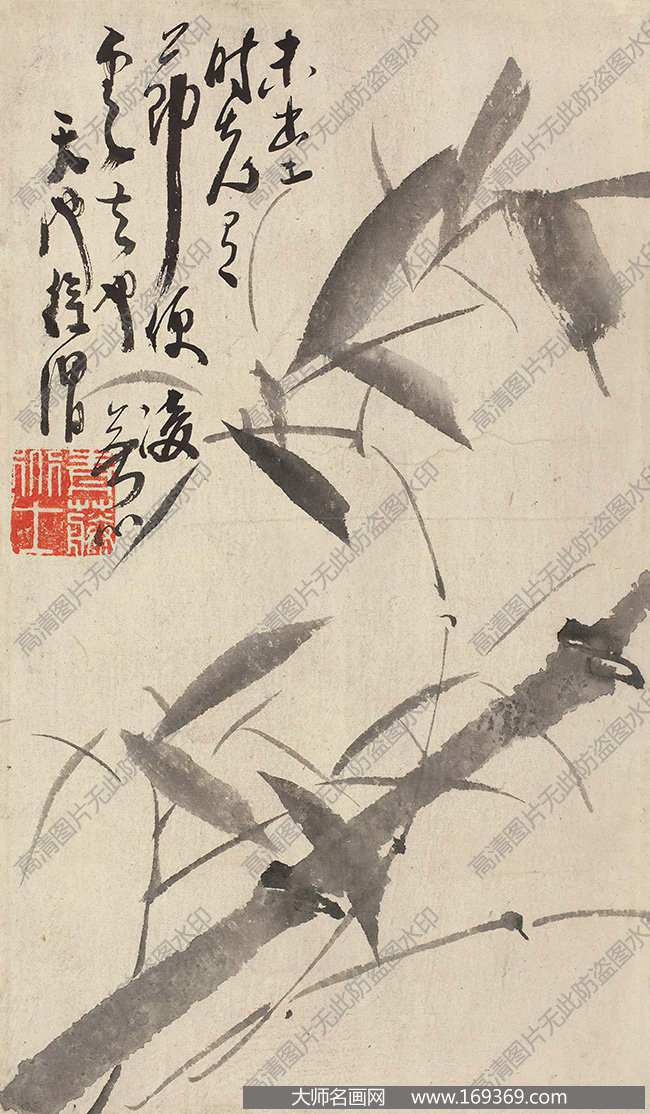 未出土
時先有
節便凌
雲去也無心
天池徐渭
高清图片无此防盗图水印
大师名画网 www.169369.com